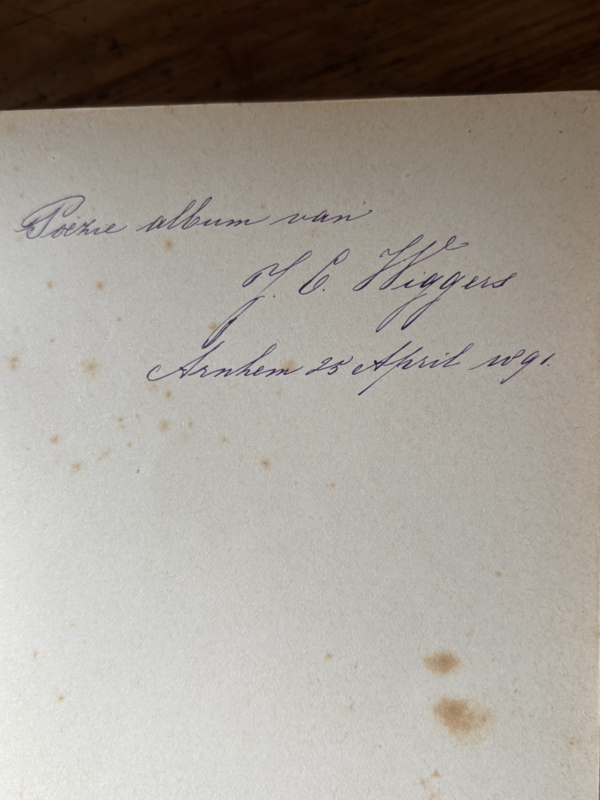 Poëzie album van
J. C. Wiggers
Arnhem 25 April 1891.